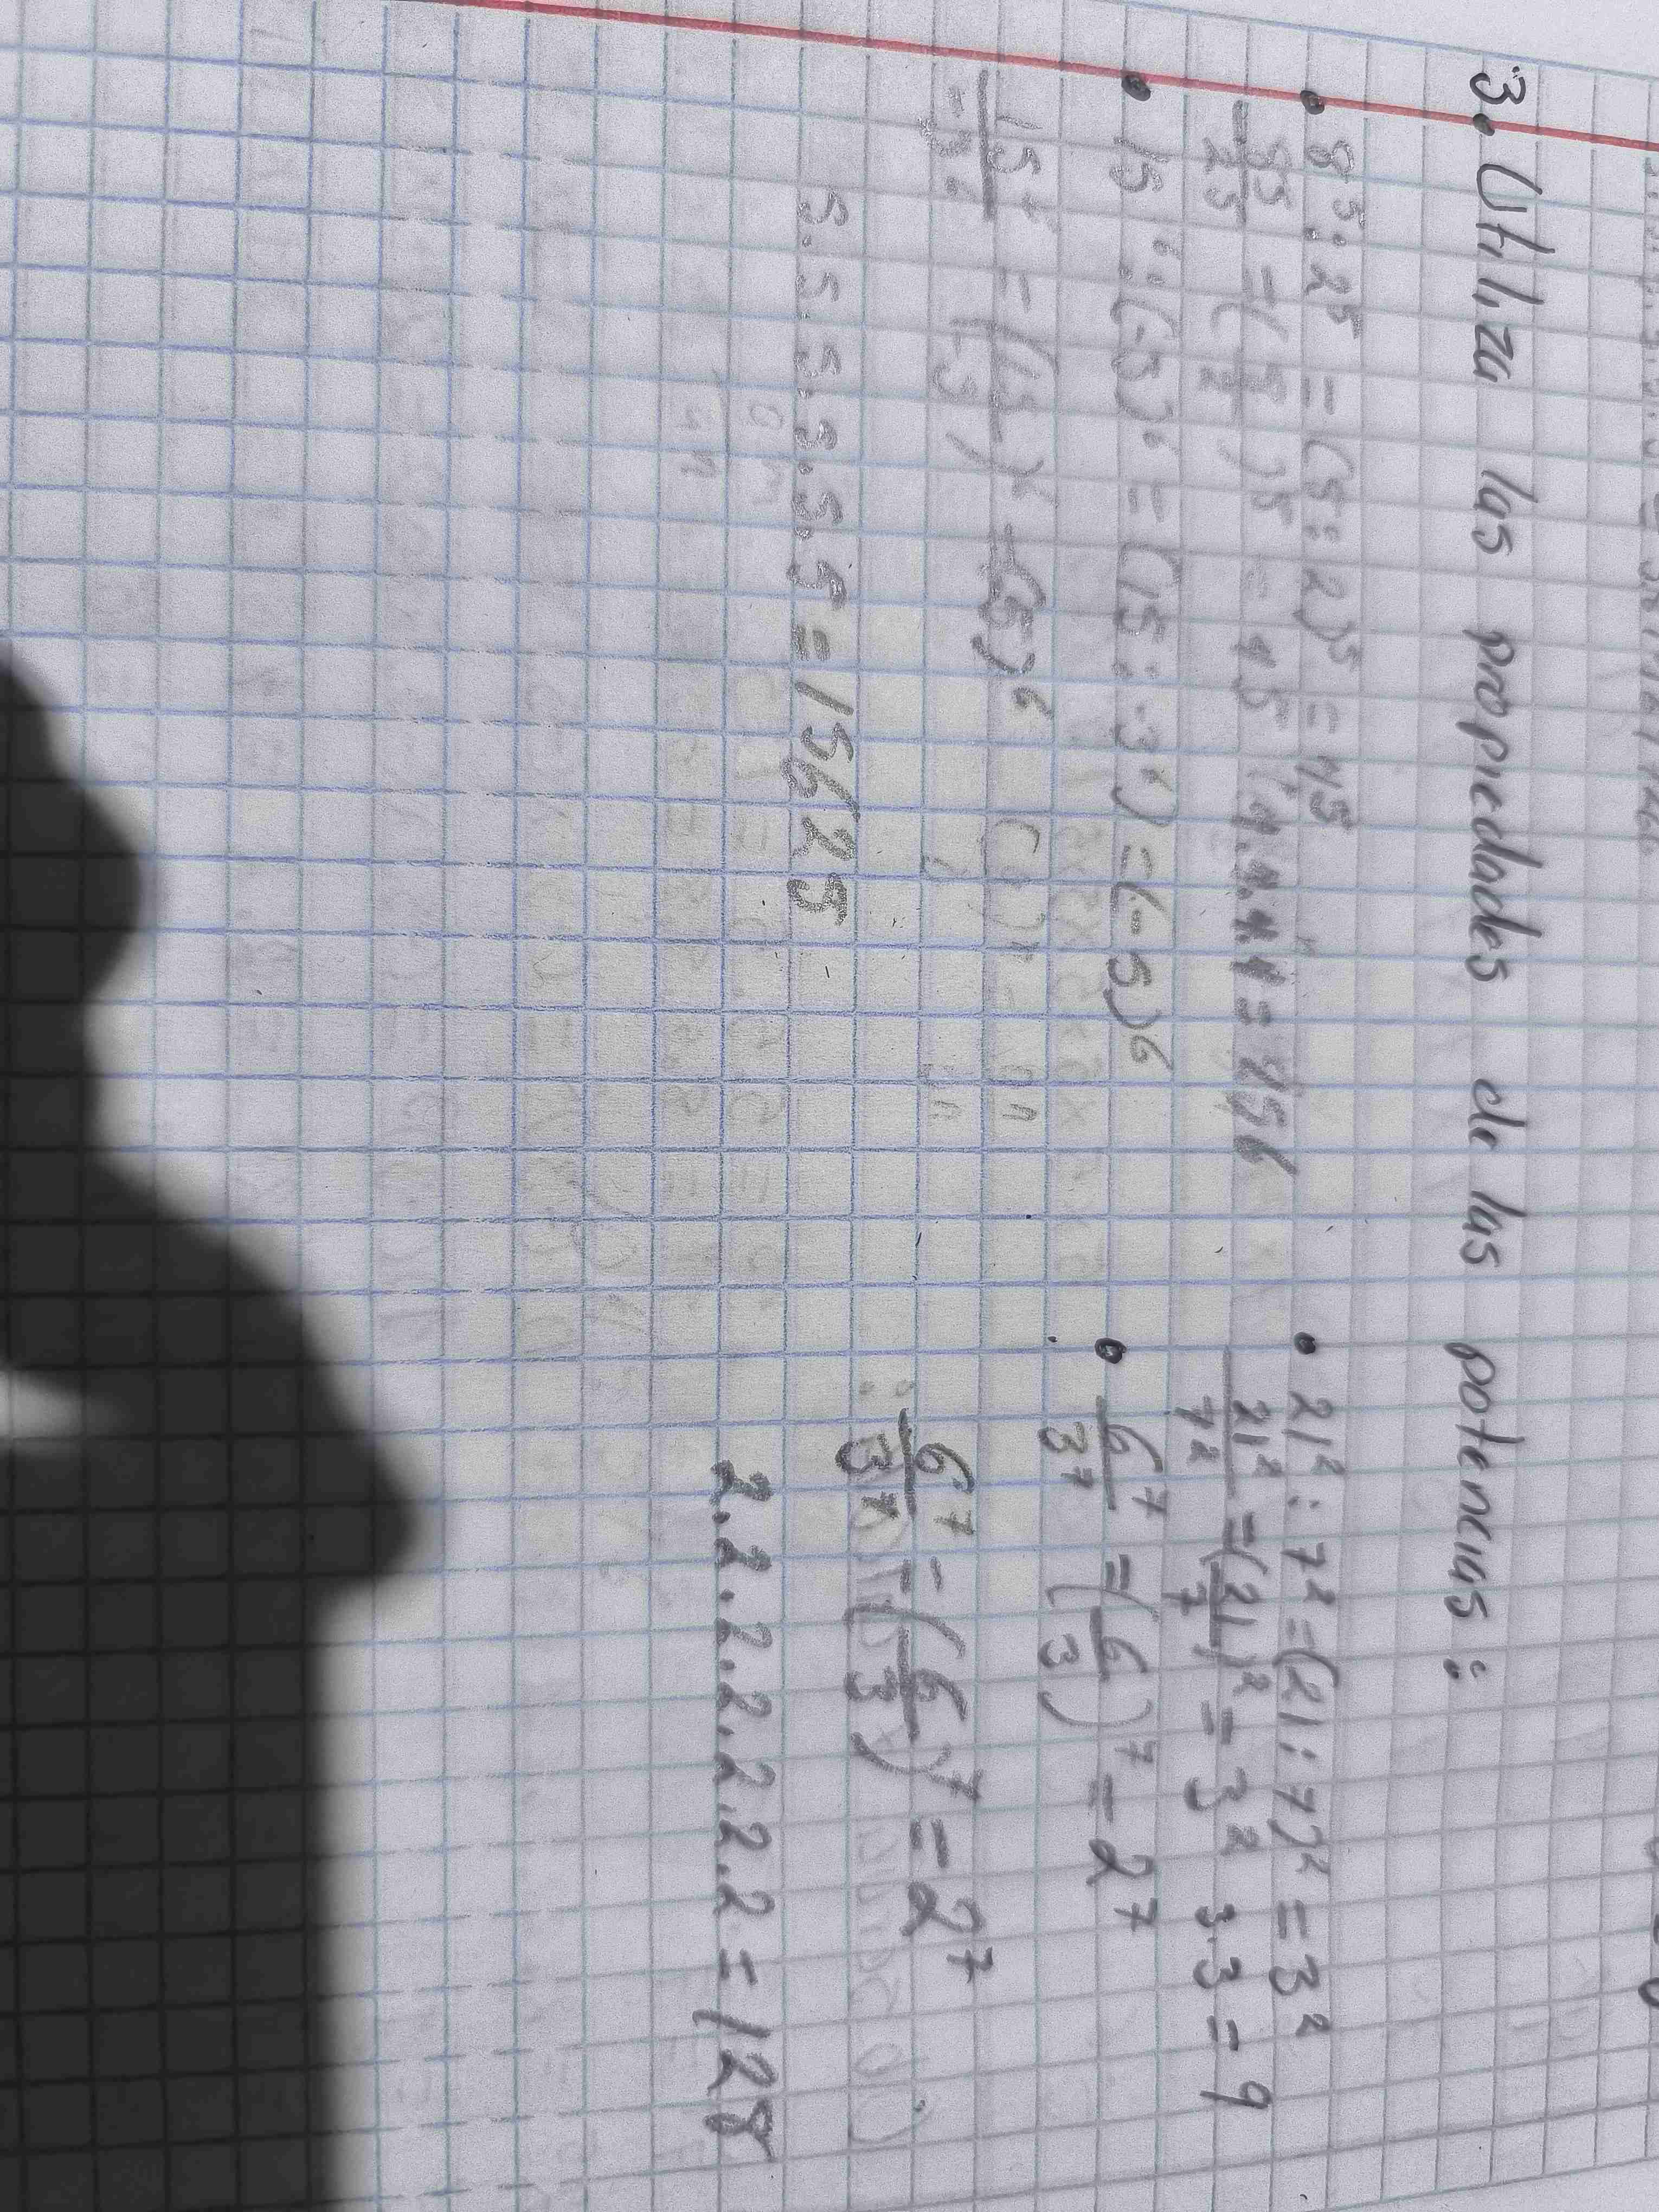 3. Utiliza las propiedades de las potencias:
• 8⁵ : 2⁵ = (5 : 2)⁵ = 4⁵
8⁵/2⁵ = (8/2)⁵ = 4⁵ 4.4.4.4 =
• 15⁶ : (-3)⁶ = (15 : -3⁶) = (-5)⁶
15⁶/-3⁶ = (15/-3)⁶ (5)⁶
5.5.5.5.5.5 = 15625
• 21² : 7² = (21 : 7)² = 3²
21²/7² = (21/7)² = 3² 3.3 = 9
• 6⁷/3⁷ = (6/3)⁷ = 2⁷
6⁷/3⁷ = (6/3)⁷ = 2⁷
2.2.2.2.2.2.2 = 128